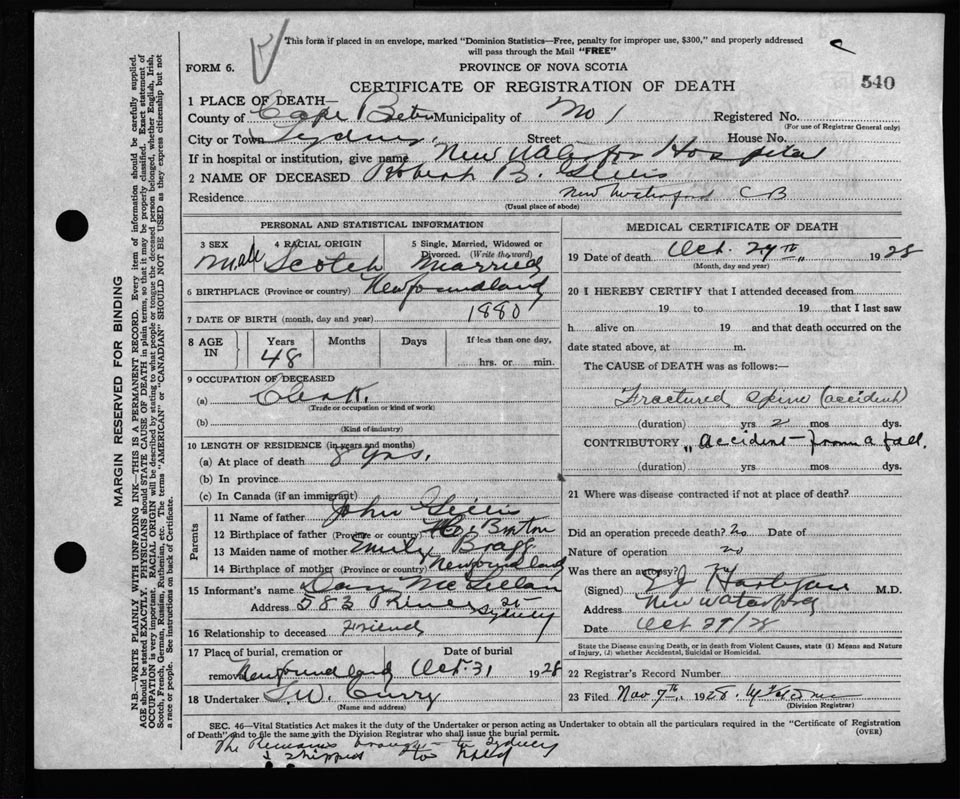 This form if placed in an envelope, marked "Dominion Statistics—Free, penalty for improper use, $300," and properly addressed
will pass through the Mail "FREE"
FORM 6.
PROVINCE OF NOVA SCOTIA
540
CERTIFICATE OF REGISTRATION OF DEATH
1 PLACE OF DEATH—
County of Cape Breton Municipality of No 1 Registered No.
(For use of Registrar General only)
City or Town Sydney, Street House No.
If in hospital or institution, give name New Waterford Hospital
2 NAME OF DECEASED Robert B. Gillis
Residence New Waterford CB
(Usual place of abode)
PERSONAL AND STATISTICAL INFORMATION
3 SEX Male
4 RACIAL ORIGIN Scotch
5 Single, Married, Widowed or Divorced. (Write the word) Married
6 BIRTHPLACE (Province or country) Newfoundland
7 DATE OF BIRTH (month, day and year) 1880
8 AGE IN Years 48 Months Days If less than one day, hrs. or min.
9 OCCUPATION OF DECEASED
(a) Clerk.
(Trade or occupation or kind of work)
(b)
(Kind of industry)
10 LENGTH OF RESIDENCE (in years and months)
(a) At place of death 8 yrs.
(b) In province
(c) In Canada (if an immigrant)
Parents
11 Name of father John Gillis
12 Birthplace of father (Province or country)
13 Maiden name of mother Emily Bragg
14 Birthplace of mother (Province or country) Newfoundland
15 Informant's name Dan McLellan
Address 582 St Sydney
16 Relationship to deceased Friend
17 Place of burial, cremation or removal Newfoundland Date of burial Oct 31 1928
18 Undertaker Curry
(Name and address)
MEDICAL CERTIFICATE OF DEATH
19 Date of death Oct. 29th, 1928
(Month, day and year)
20 I HEREBY CERTIFY that I attended deceased from
19 to 19 that I last saw
h alive on 19 and that death occurred on the
date stated above, at m.
The CAUSE of DEATH was as follows:—
Fractured spine (accident)
(duration) yrs 2 mos dys.
CONTRIBUTORY " Accident - from a fall.
(duration) yrs mos dys.
21 Where was disease contracted if not at place of death?
Did an operation precede death? no Date of
Nature of operation no
Was there an autopsy? no
(Signed) M.D.
Address New Waterford
Date Oct 29/28
State the Disease causing Death, or in death from Violent Causes, state (1) Means and Nature
of Injury, (2) whether Accidental, Suicidal or Homicidal.
22 Registrar's Record Number
23 Filed Nov 7th, 1928.
(Division Registrar)
SEC. 46—Vital Statistics Act makes it the duty of the Undertaker or person acting as Undertaker to obtain all the particulars required in the "Certificate of Registration
of Death" and to file the same with the Division Registrar who shall issue the burial permit.
(OVER)
The Remains brought to Sydney
& shipped to Nfld
MARGIN RESERVED FOR BINDING
N.B.—WRITE PLAINLY WITH UNFADING INK—THIS IS A PERMANENT RECORD. Every item of information should be carefully supplied.
AGE should be stated EXACTLY. PHYSICIANS should STATE CAUSE OF DEATH in plain terms, so that it may be properly classified. Exact statement of
OCCUPATION is very important. RACIAL ORIGIN will be described by stating to what people or tongue the deceased person belonged, whether English, Irish,
Scotch, French, German, Russian, Ruthenian, etc. The terms "AMERICAN" or "CANADIAN" SHOULD NOT BE USED as they express citizenship but not
a race or people. See instructions on back of Certificate.